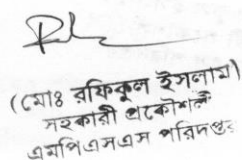 (মোঃ রফিকুল ইসলাম)
সহকারী প্রকৌশলী
এমপিএসএস পরিদপ্তর